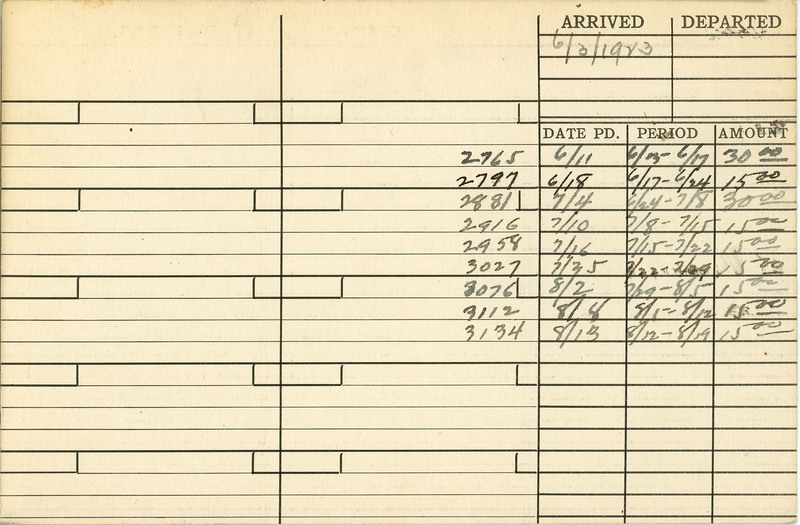 ARRIVED DEPARTED
6/3/1923
DATE PD. PERIOD AMOUNT
2765 6/11 6/03- 6/17 30 00
2797 6/18 6/17-6/24 15 00
2881 7/4 6/24-7/8 30 00
2916 7/10 7/8-7/15 15 00
2958 7/16 7/15-7/22 15 00
3027 7/25 7/22-7/29 15 00
3076 8/2 7/29-8/5 15 00
3112 8/8 8/12 15 00
3134 8/13 8/12-8/19 15 00